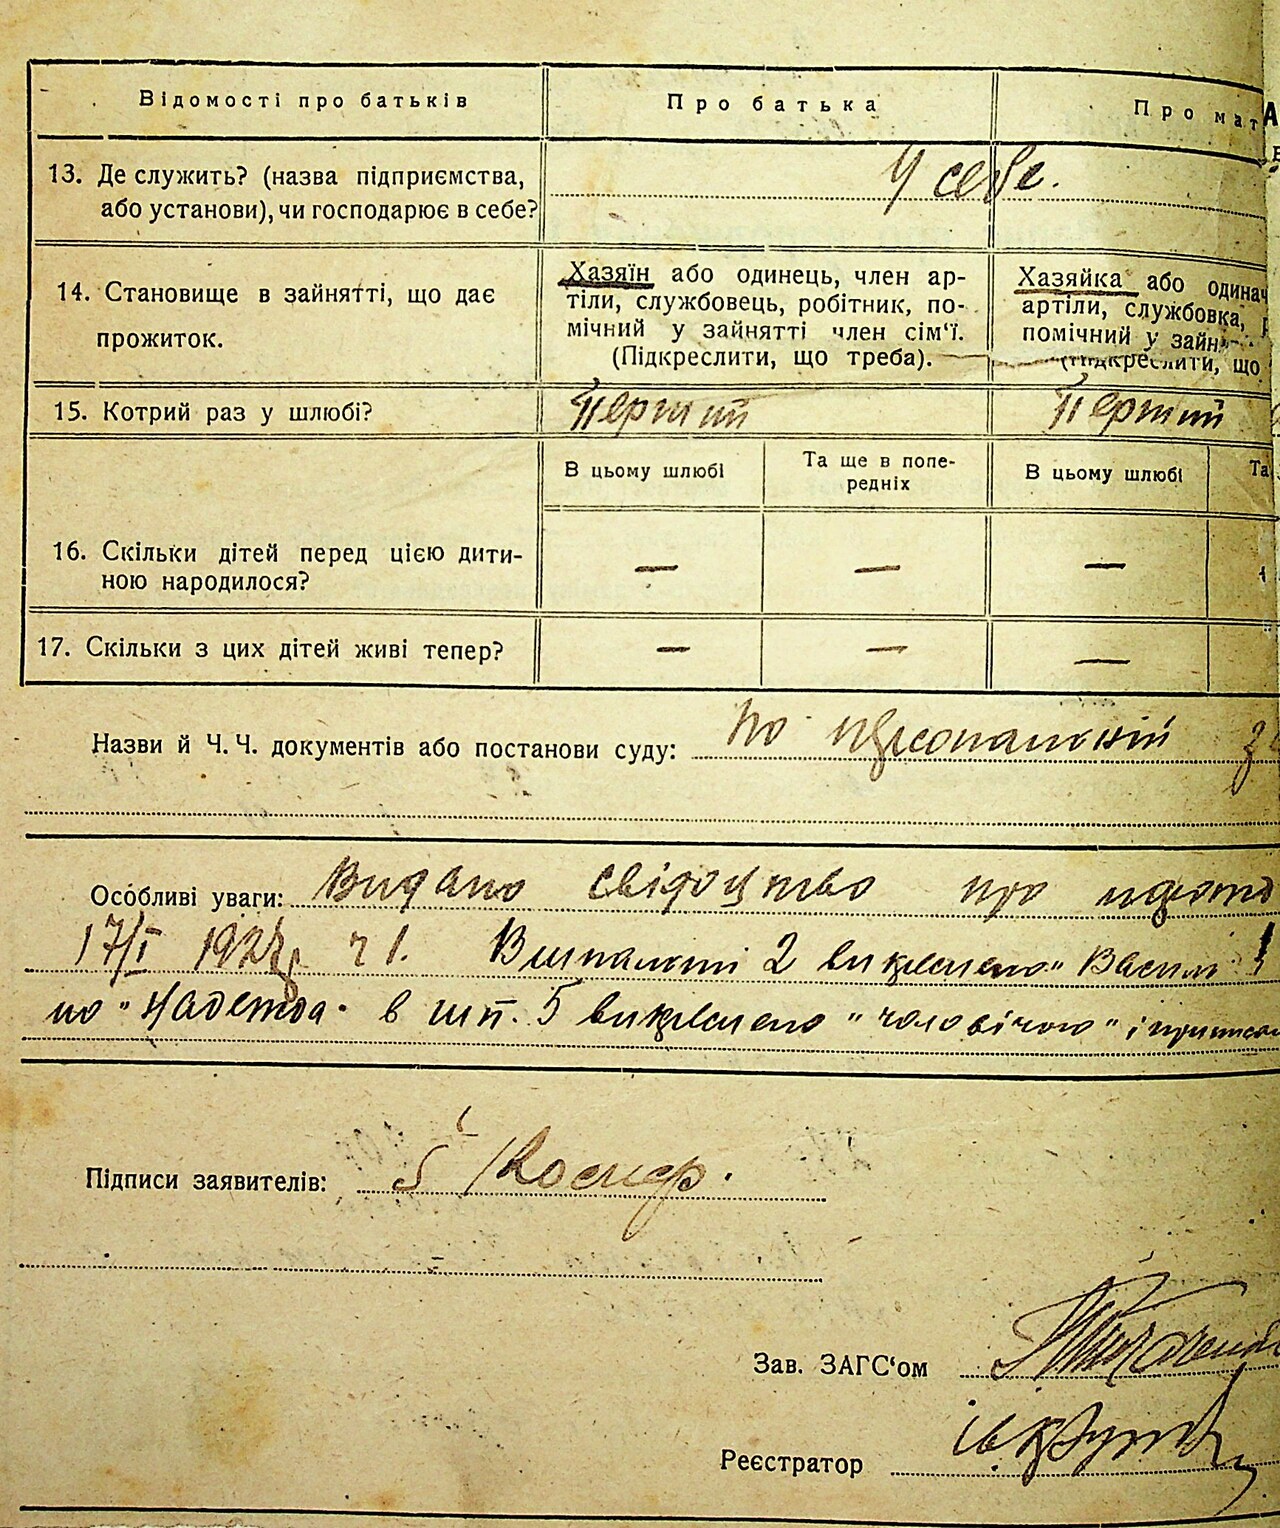 Відомості про батьків
Про батька
Про мат
13. Де служить? (назва підприємства,
або установи), чи господарює в себе?
У себе.
14. Становище в зайнятті, що дає
прожиток.
Хазяїн або одинець, член ар-
тіли, службовець, робітник, по-
мічний у зайнятті член сім'ї.
(Підкреслити, що треба).
Хазяйка або одинач
артіли, службовка,
помічний у зайн
(Підкреслити, що
15. Котрий раз у шлюбі?
Перший
Перший
В цьому шлюбі
Та ще в попе-
редніх
В цьому шлюбі
Та
16. Скільки дітей перед цією дити-
ною народилося?
— — —
17. Скільки з цих дітей живі тепер?
— — —
Назви й Ч. Ч. документів або постанови суду: по персональній
Особливі уваги: Видано свідоцтво про
17/I ч 1. В шпальті 2 викреслено "Василь"
но "Надежда" в шп. 5 викреслено "чоловічою" і
Підписи заявителів:
Зав. ЗАГС'ом
Реєстратор